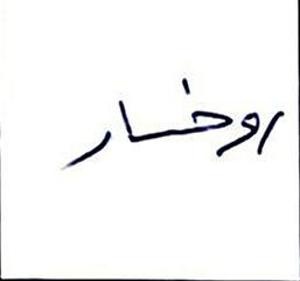 روخسار